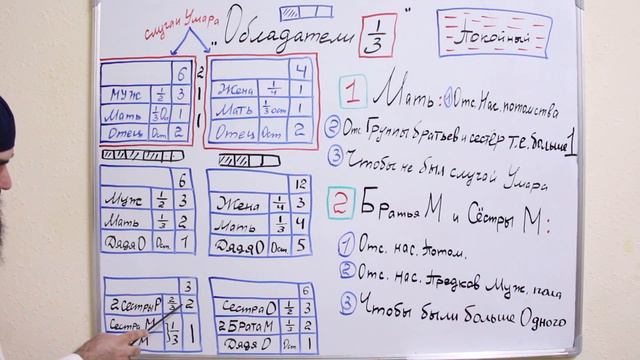 случаи Умара
"Обладатели 1/3"
Покойный
6 2
Муж 1/2 3 1
Мать 1/3 Ос 1 1
Отец Ост 2
4
Жена 1/4 1
Мать 1/3 ост 1
Отец Ост 2
6
Муж 1/2 3
Мать 1/3 2
Дядя О Ост 1
12
Жена 1/4 3
Мать 1/3 4
Дядя О Ост 5
3
2 Сестры Р 2/3 2
Сестра М 1/3 1
М
6
Сестра О 1/2 3
2 Брата М 1/3 2
Дядя О Ост 1
1 Мать: ① Отс. Нас. потомства
② Отс. Группы Братьев и сестёр т.е. больше 1
③ Чтобы не был случай Умара
2 Братья М и Сёстры М:
① Отс. нас. потом.
② Отс. нас. Предков Муж. пола
③ Чтобы были больше Одного